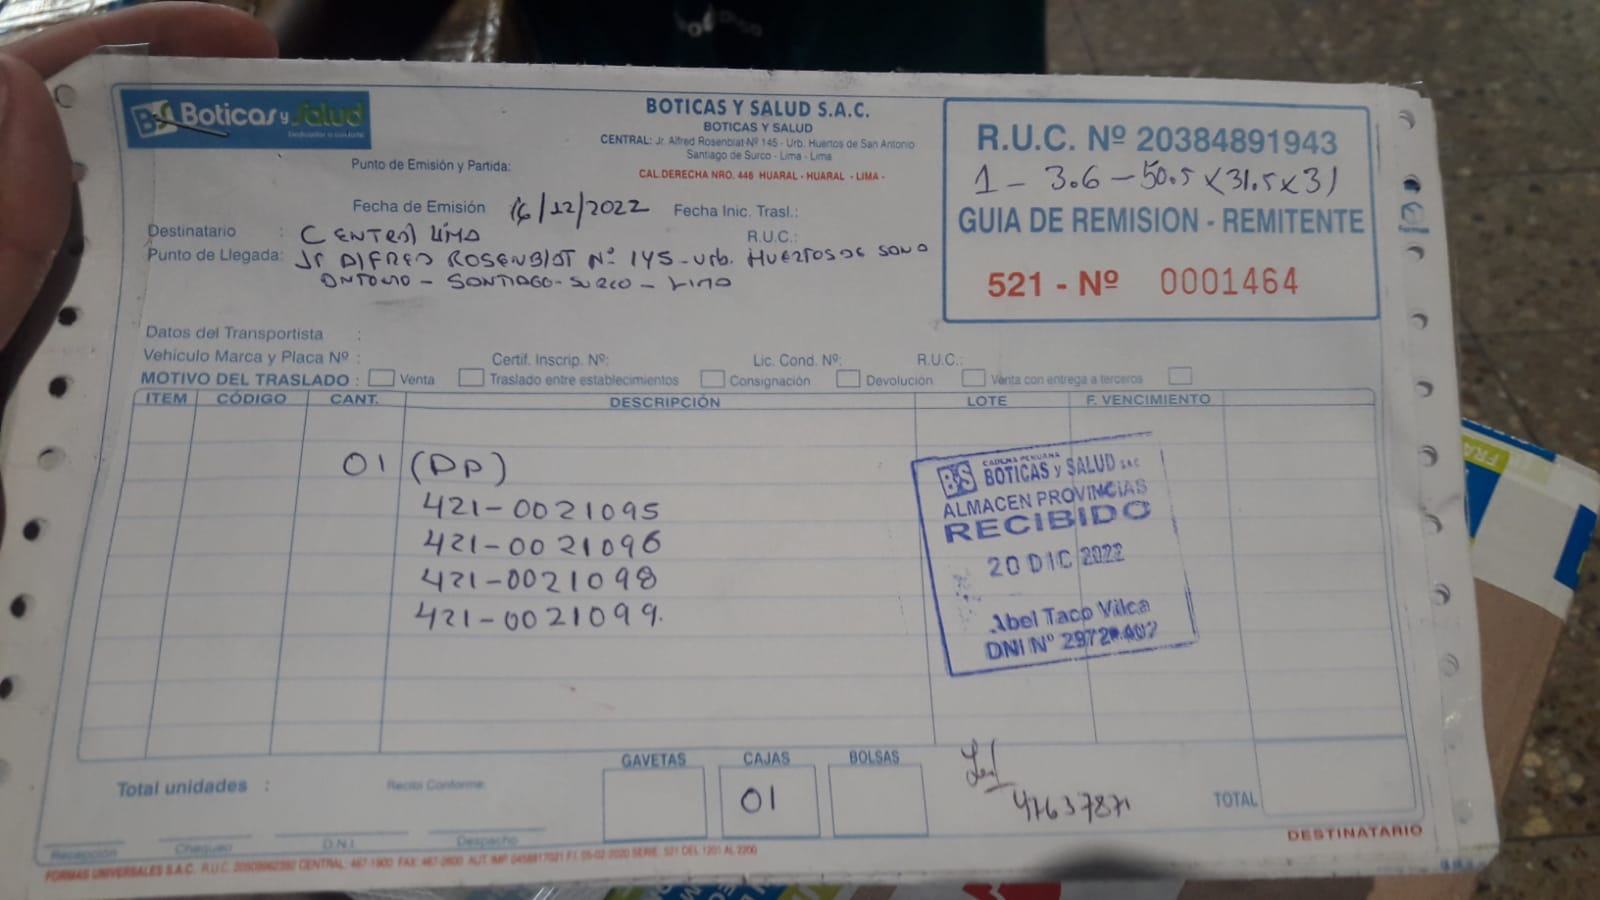 Boticas y Salud
BOTICAS Y SALUD S.A.C.
BOTICAS Y SALUD
CENTRAL: Jr. Alfred Rosenblat Nº 145 - Urb. Huertos de San Antonio
Santiago de Surco - Lima - Lima
CAL.DERECHA NRO. 446 HUARAL - HUARAL - LIMA -
R.U.C. Nº 20384891943
1 - 3.6 - 50.5 x 31.5 x 31
GUIA DE REMISION - REMITENTE
521 - Nº 0001464
Punto de Emisión y Partida:
Fecha de Emisión 16/12/2022 Fecha Inic. Trasl.:
Destinatario : CENTRAL LIMA R.U.C.:
Punto de Llegada: Jr ALFRED ROSENBLAT Nº 145 - Urb. HUERTOS DE SAN
ANTONIO - SANTIAGO - SURCO - LIMA
Datos del Transportista :
Vehículo Marca y Placa Nº : Certif. Inscrip. Nº: Lic. Cond. Nº: R.U.C.:
MOTIVO DEL TRASLADO : Venta Traslado entre establecimientos Consignación Devolución Venta con entrega a terceros
ITEM CÓDIGO CANT. DESCRIPCIÓN LOTE F. VENCIMIENTO
01 (DP)
421-0021095
421-0021096
421-0021098
421-0021099.
CADENA PERUANA
BS BOTICAS y SALUD SAC
ALMACEN PROVINCIAS
RECIBIDO
20 DIC 2022
Abel Taco Vilca
DNI Nº
GAVETAS CAJAS BOLSAS
Total unidades : Recibi Conforme: 01 TOTAL
47637871
Recepción Chequeo D.N.I. Despacho
DESTINATARIO
FORMAS UNIVERSALES S.A.C. R.U.C. CENTRAL: 467-1900 FAX: 467-2600 AUT. IMP. F.I. 05-02-2020 SERIE: 521 DEL 1201 AL 2200